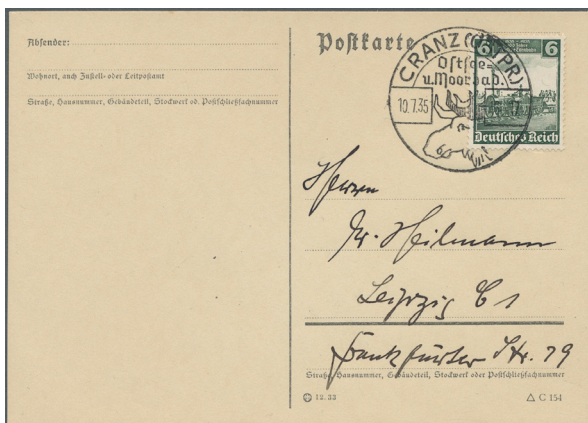 Absender:
Wohnort, auch Zustell- oder Leitpostamt
Straße, Hausnummer, Gebäudeteil, Stockwerk od. Postschließfachnummer
Postkarte
CRANZ (OSTPR)
Ostsee=
u. Moorbad.
10.7.35
6 6
Deutsches Reich
Herrn
Dr. Heilmann
Leipzig C 1
Frankfurter Str. 79
Straße, Hausnummer, Gebäudeteil, Stockwerk oder Postschließfachnummer
12. 33
C 154